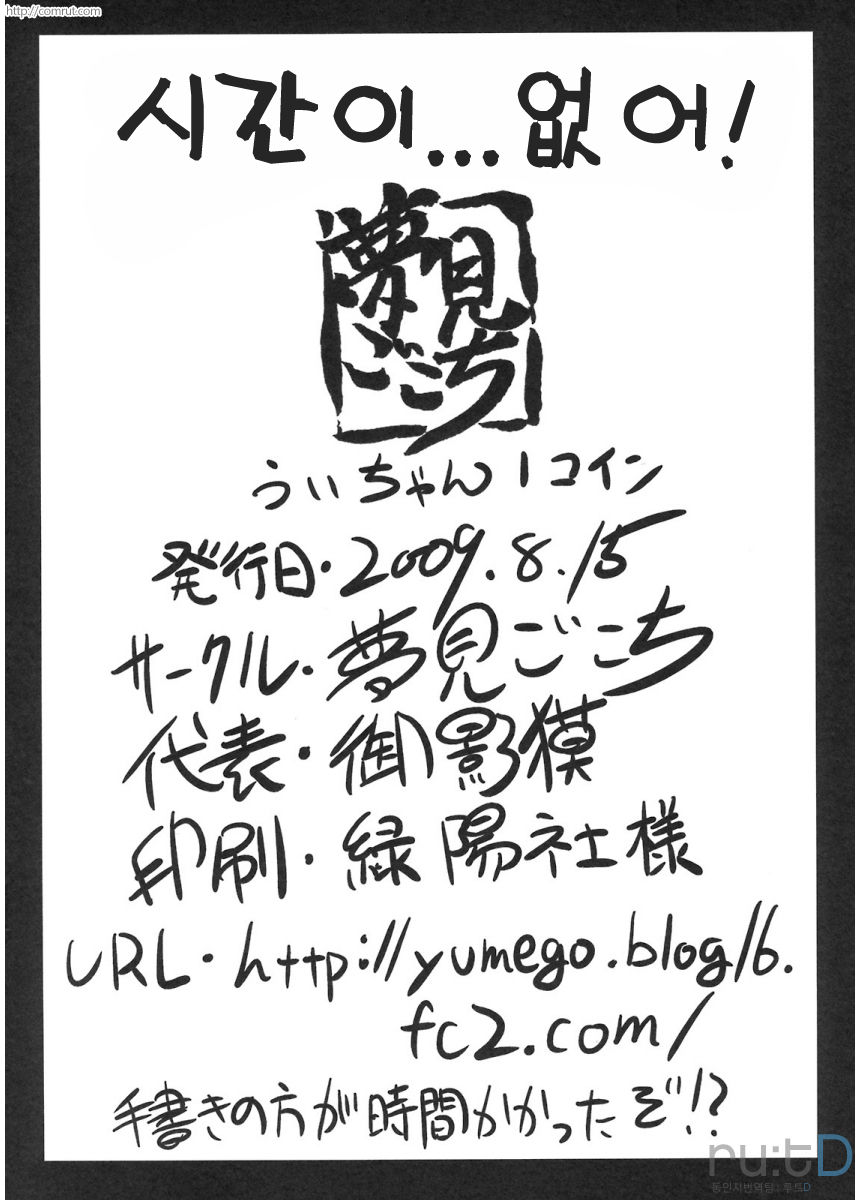 http://comrut.com
시간이...없어!
夢見
ごこち
ういちゃん1コイン
発行日・2009.8.15
サークル・夢見ごこち
代表・御影獏
印刷・緑陽社様
URL・http://yumego.blog16.
fc2.com/
手書きの方が時間かかったぞ!?
ru:tD
동인지번역팀 : 루트D